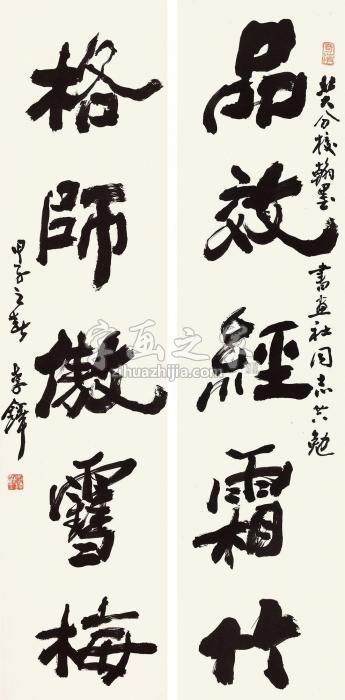 品效經霜竹
分校翰墨書畫社同志共勉
格師傲雪梅
甲子之 李鐸
字画之家
zihuazhijia.com